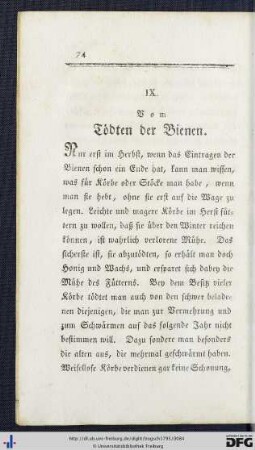 74
IX.
Vom
Tödten der Bienen.
Nur erst im Herbst, wenn das Eintragen der
Bienen schon ein Ende hat, kann man wissen,
was für Körbe oder Stöcke man habe, wenn
man sie hebt, ohne sie erst auf die Wage zu
legen. Leichte und magere Körbe im Herst füt-
tern zu wollen, daß sie über den Winter reichen
können, ist wahrlich verlorene Mühe. Das
sicherste ist, sie abzutödten, so erhält man doch
Honig und Wachs, und ersparet sich dabey die
Mühe des Fütterns. Bey dem Besitz vieler
Körbe tödtet man auch von den schwer belade-
nen diejenigen, die man zur Vermehrung und
zum Schwärmen auf das folgende Jahr nicht
bestimmen will. Dazu sondere man besonders
die alten aus, die mehrmal geschwärmt haben.
Weisellose Körbe verdienen gar keine Schonung,
© Universitätsbibliothek Freiburg
gefördert durch
DFG